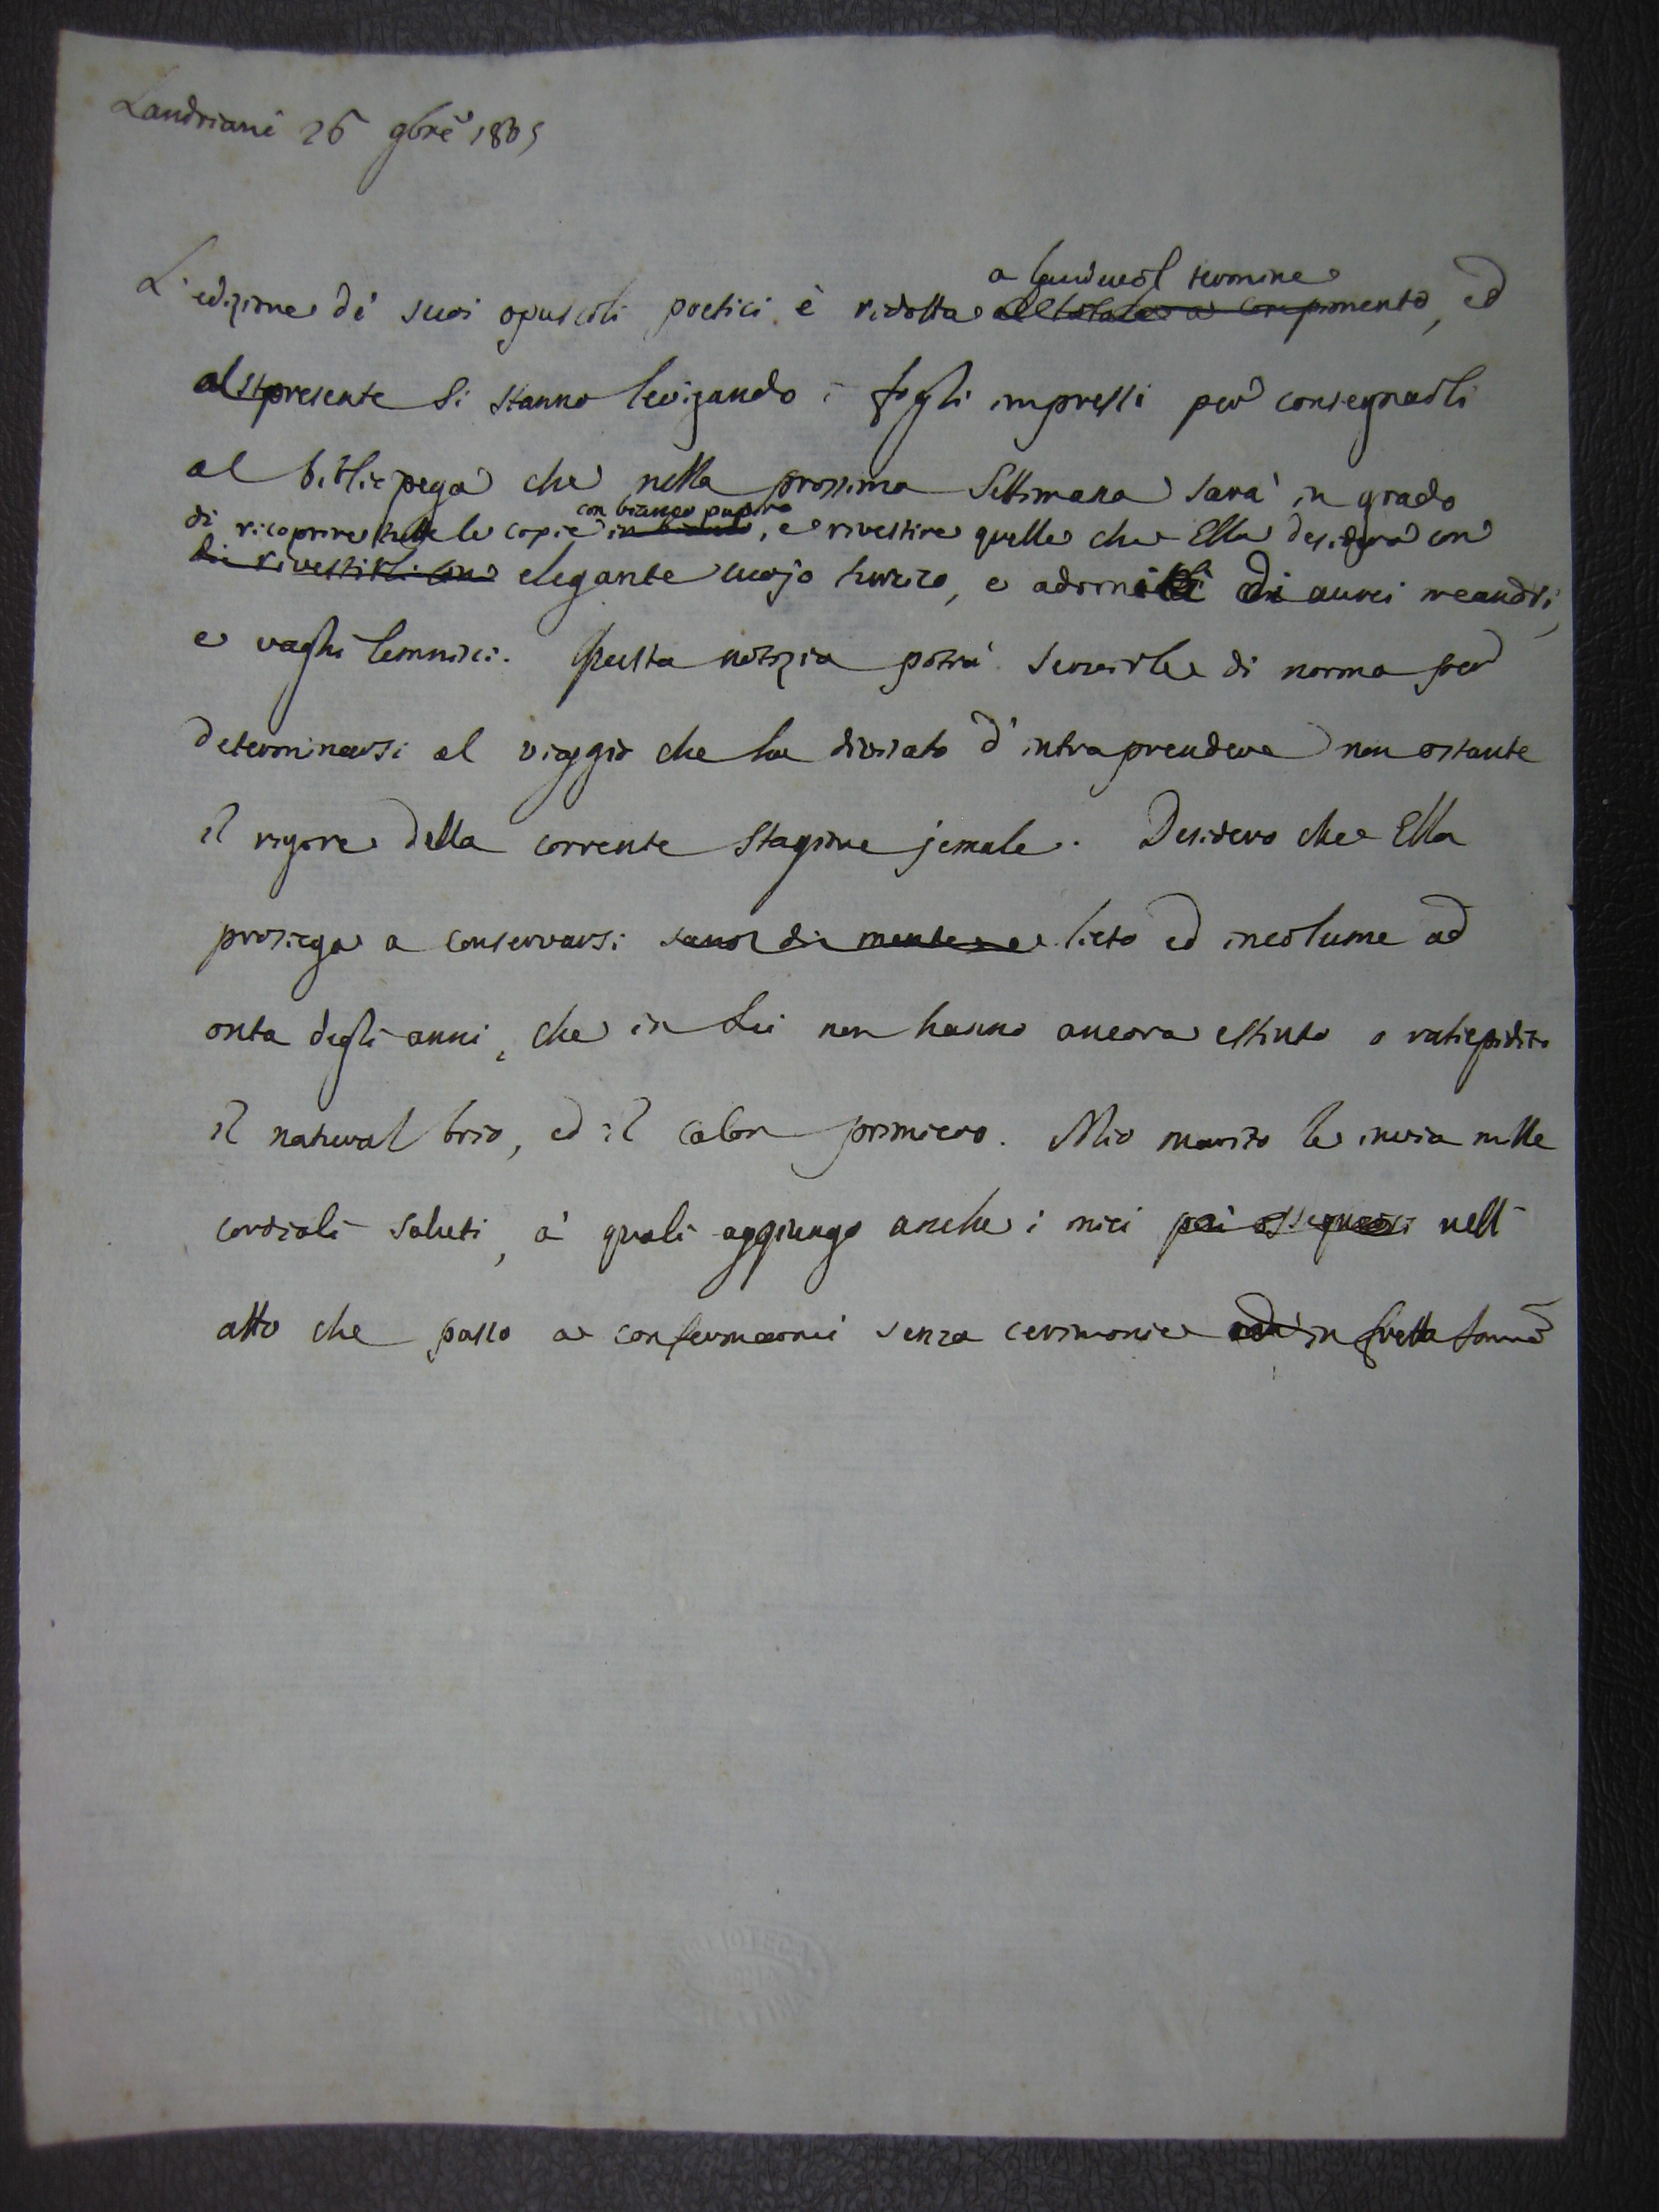 Landriani 26 9bre 1805
a laudevol termine
L'edizione de' suoi opuscoli poetici è ridotta al totale a compimento, ed
al presente si stanno levigando i fogli impressi per consegnarli
al bibliopega che nella prossima settimana sarà in grado
con bianco papiro
di ricoprire tutte le copie, e rivestire quelle che Ella desidera con
di rivestirli con elegante cuojo turco, e adorni di aurei meandri,
e vaghi lemnisci. Questa notizia potrà servirle di norma per
determinarsi al viaggio che ha divisato d'intraprendere non ostante
il rigore della corrente stagione jemale. Desidero che Ella
prosiega a conservarsi sano di mente e lieto ed incolume ad
onta degli anni, che in Lei non hanno ancora estinto o ratiepidito
il natural brio, ed il calor primiero. Mio marito le invia mille
cordiali saluti, a' quali aggiungo anche i miei più ossequiosi nell
atto che passo a confermarmi senza cerimonie in fretta